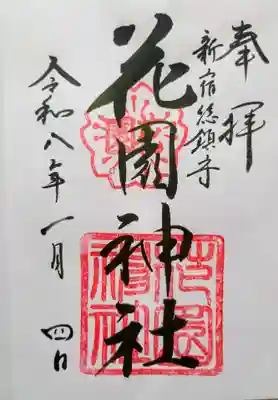 奉拝
新宿総鎮守
花園神社
令和八年一月四日